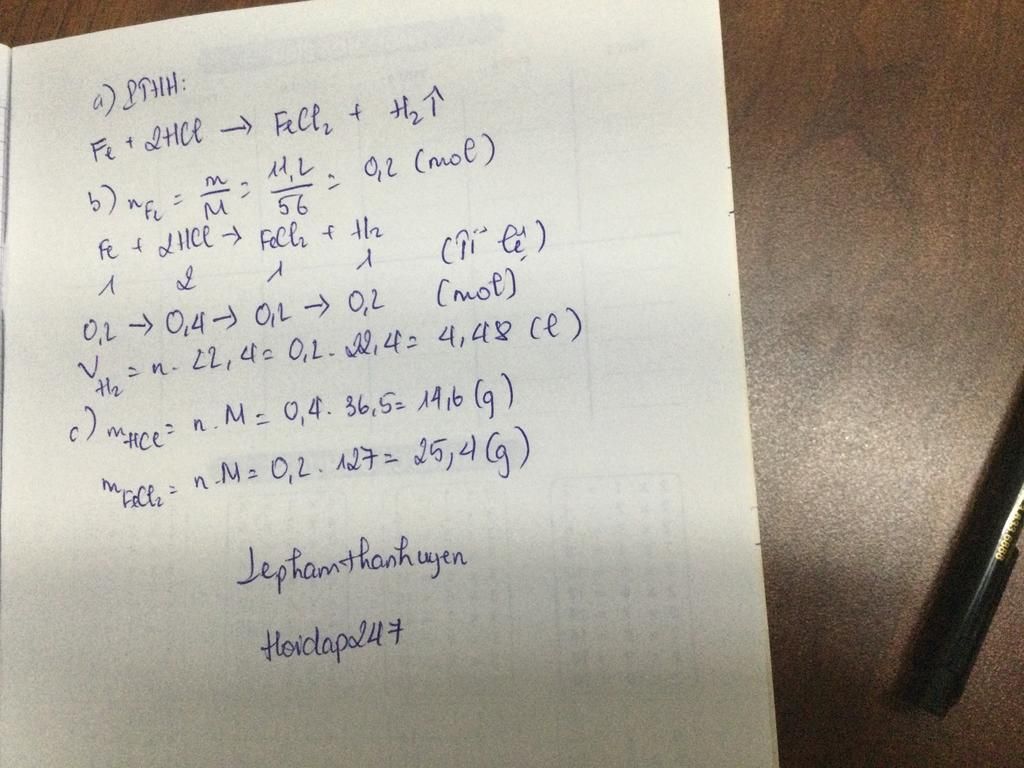 a) PTHH:
Fe + 2HCl → FeCl₂ + H₂↑
b) n_Fe = m/M = 11,2/56 = 0,2 (mol)
Fe + 2HCl → FeCl₂ + H₂
1 2 1 1 (Tỉ lệ)
0,2 → 0,4 → 0,2 → 0,2 (mol)
V_H₂ = n. 22,4 = 0,2. 22,4 = 4,48 (l)
c) m_HCl = n.M = 0,4. 36,5 = 14,6 (g)
m_FeCl₂ = n.M = 0,2. 127 = 25,4 (g)
Lephamthanhuyen
Hoidap247